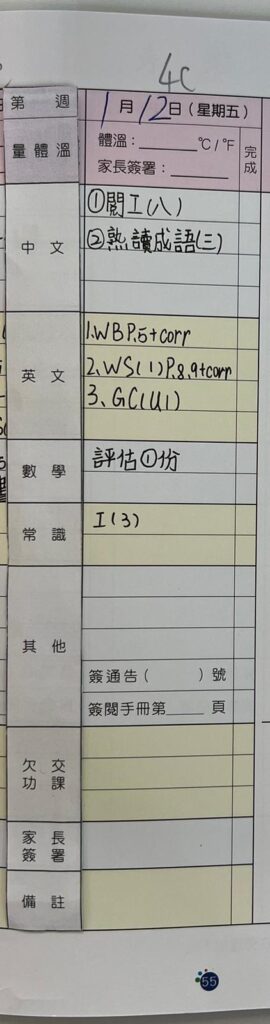 4C
第 週 1月12日(星期五)
量體溫 體溫:______°C/°F 完成
家長簽署:______
中文 ①閱工(八)
②熟讀成語(三)
英文 1. WB P.5+corr
2. WS(1) P.8,9+corr
3. GC(U1)
數學 評估①份
常識 工(3)
其他
簽通告( )號
簽閱手冊第____頁
欠交功課
家長簽署
備註
55